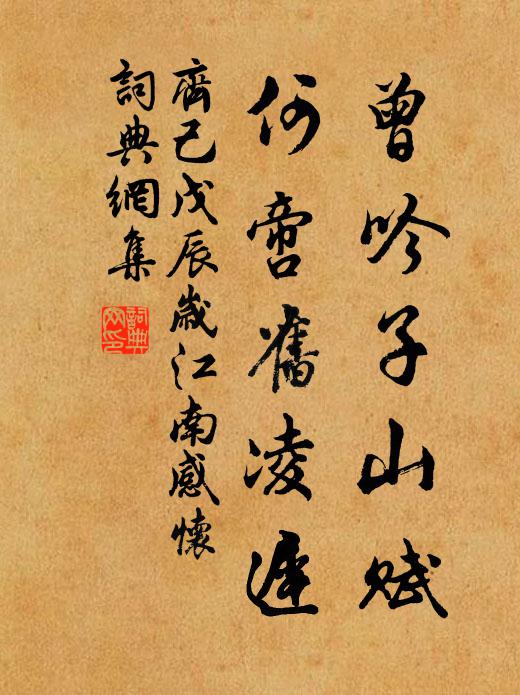 曾吟子山賦
何啻舊凌遲
齊己戊辰歲江南感懷
詞典網集
詞典網印